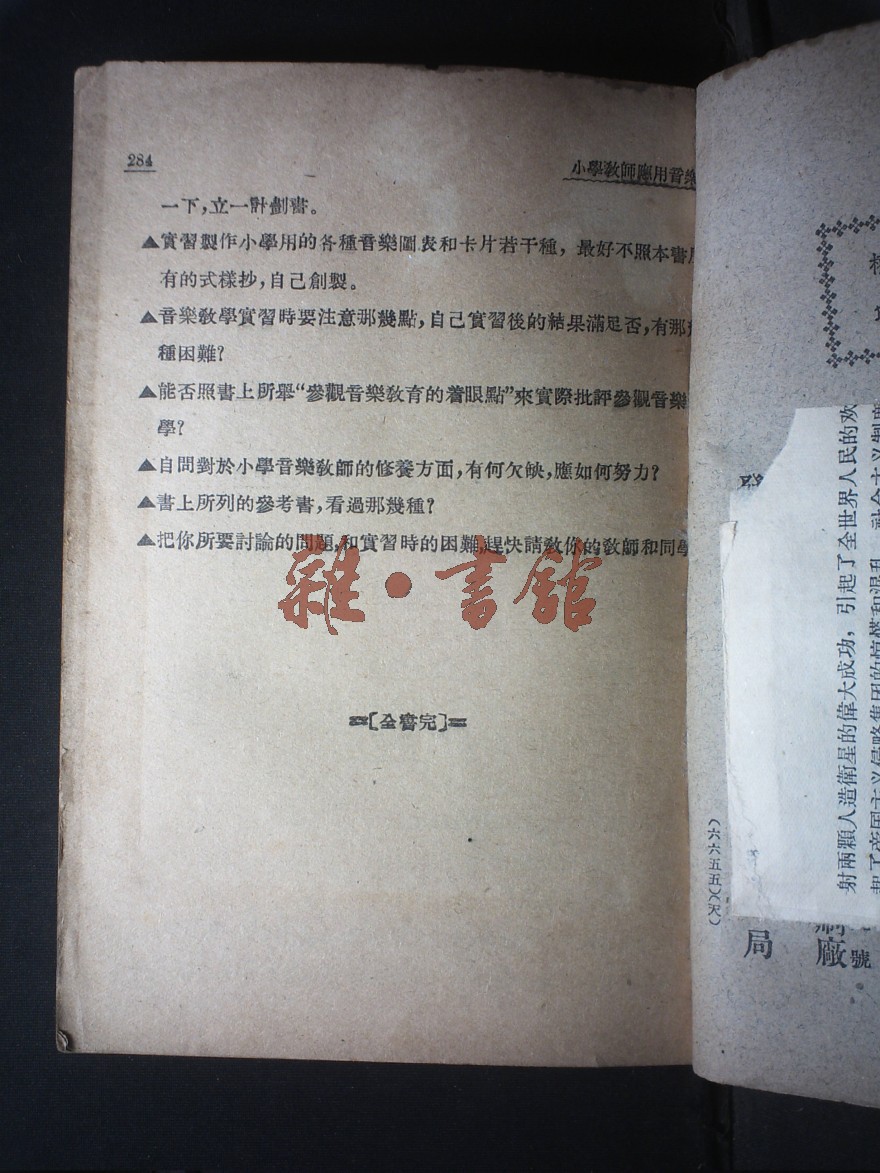 284
小學敎師應用音樂
一下，立一計劃書。
▲實習製作小學用的各種音樂圖表和卡片若干種，最好不照本書
有的式樣抄，自己創製。
▲音樂敎學實習時要注意那幾點，自己實習後的結果滿足否，有那
種困難？
▲能否照書上所舉“參觀音樂敎育的着眼點”來實際批評參觀音樂
學？
▲自問對於小學音樂敎師的修養方面，有何欠缺，應如何努力？
▲書上所列的參考書，看過那幾種？
▲把你所要討論的問題，和實習時的困難，趕快請敎你的敎師和同學
雜·書館
〔全書完〕
射兩顆人造衛星的偉大成功，引起了全世界人民的欢
（六六五五）（天）
局
廠
號